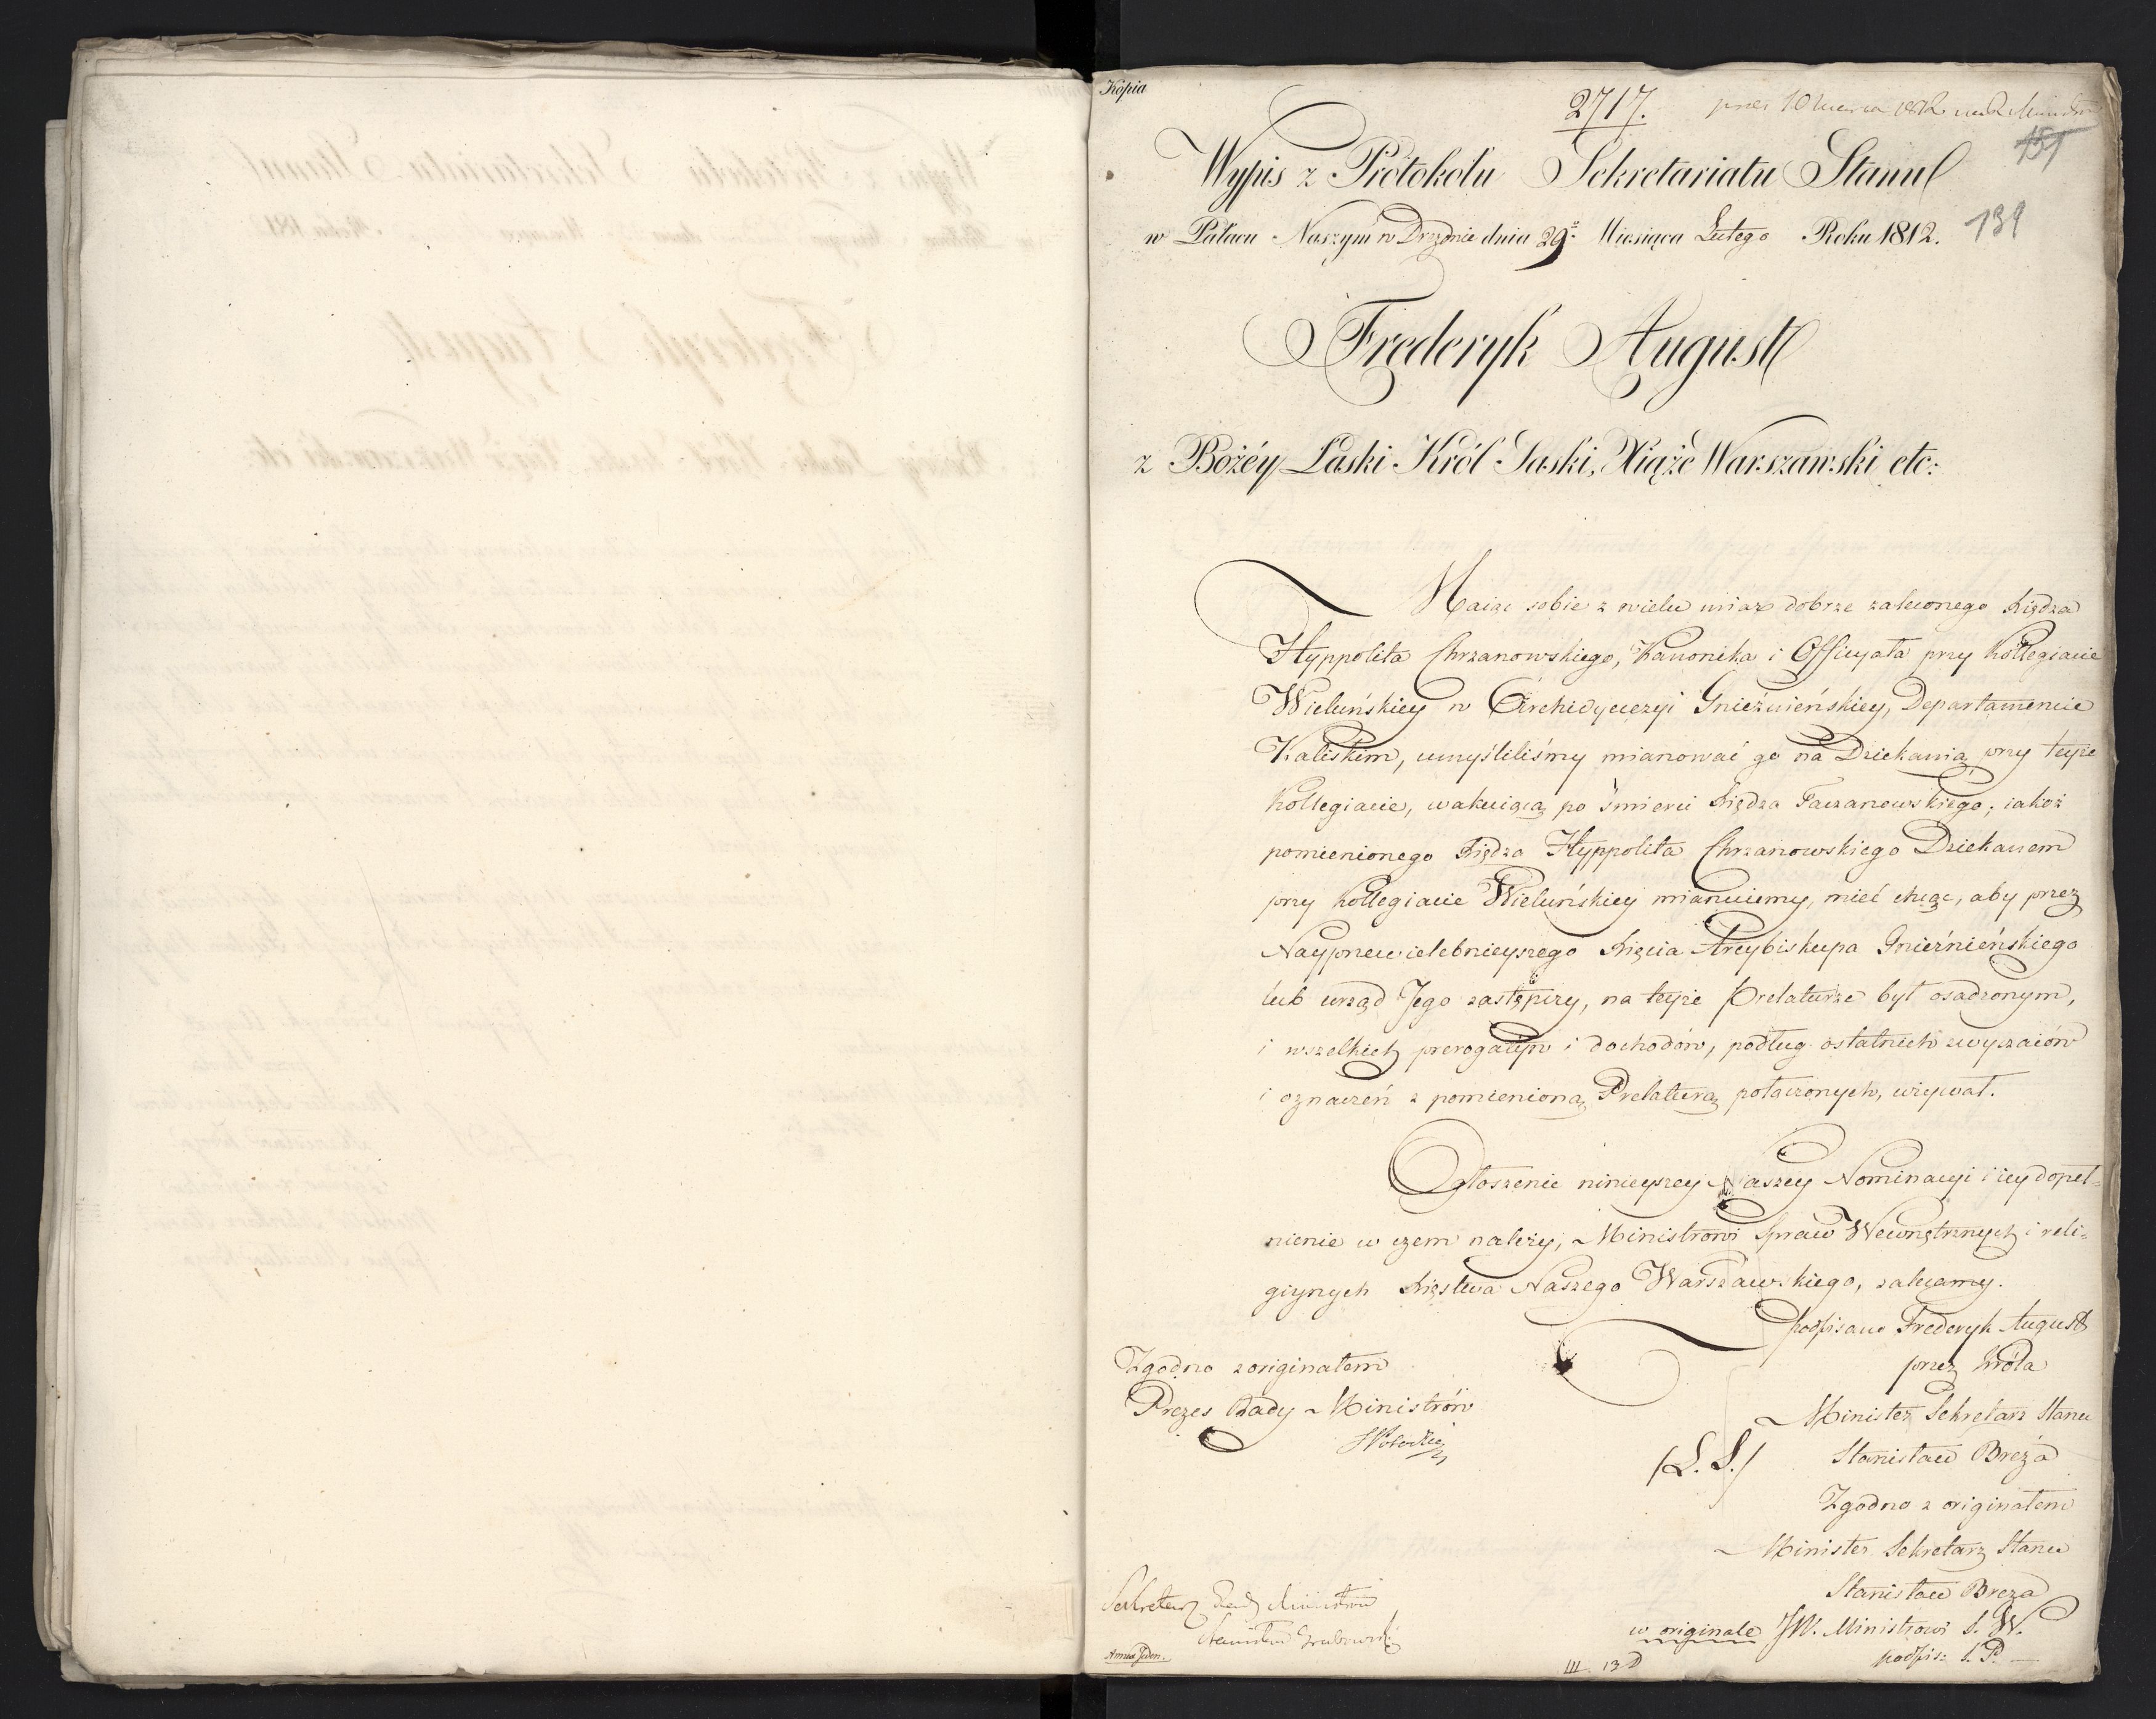 Kopia
2717.
151
139
Wypis z Protokołu Sekretariatu Stanu
w Pałacu Naszym w Dreźnie dnia 29º Miesiąca Lutego Roku 1812.
Frederyk August
z Bożéy Łaski Król Saski, Xiąże Warszawski etc:
Maiąc sobie z wielu miar dobrze zaleconego Xiędza
Hyppolita Chrzanowskiego, Kanonika i Officyała przy Kollegiacie
Wieluńskiey w Archidyecezyi Gnieźnieńskiey, Departamencie
Kaliskim, umyśliliśmy mianować go na Dziekanią przy teyże
Kollegiacie, wakuiącą po śmierci Xiędza Taczanowskiego; iakoż
pomienionego Xiędza Hyppolita Chrzanowskiego Dziekanem
przy Kollegiacie Wieluńskiey mianuiemy, mieć chcąc, aby przez
Nayprzewielebnieyszego Xięcia Arcybiskupa Gnieźnieńskiego
lub urząd Jego zastępuiący, na teyże Prelaturze był osadzonym,
i wszelkich prerogatyw i dochodów, podług ostatnich zwyczaiów
i oznaczeń z pomienioną Prelaturą połączonych, używał.
Ogłoszenie ninieyszey Naszey Nominacyi i iey dopeł-
nienie w czem należy, Ministrowi Spraw Wewnętrznych i reli-
giynych Xięstwa Naszego Warszawskiego, zalecamy.
podpisano Frederyk August
przez Króla
Minister Sekretarz Stanu
(L.S.) Stanisław Breza
Zgodno z originałem
Minister Sekretarz Stanu
Stanisław Breza
Zgodno z originałem
Prezes Rady Ministrów
Sekretarz Rady Ministrów
Stanisław Grabowski
Annex Jeden.
w originale JW. Ministrowi S. W.
podpis: S. P.
III. 13 D